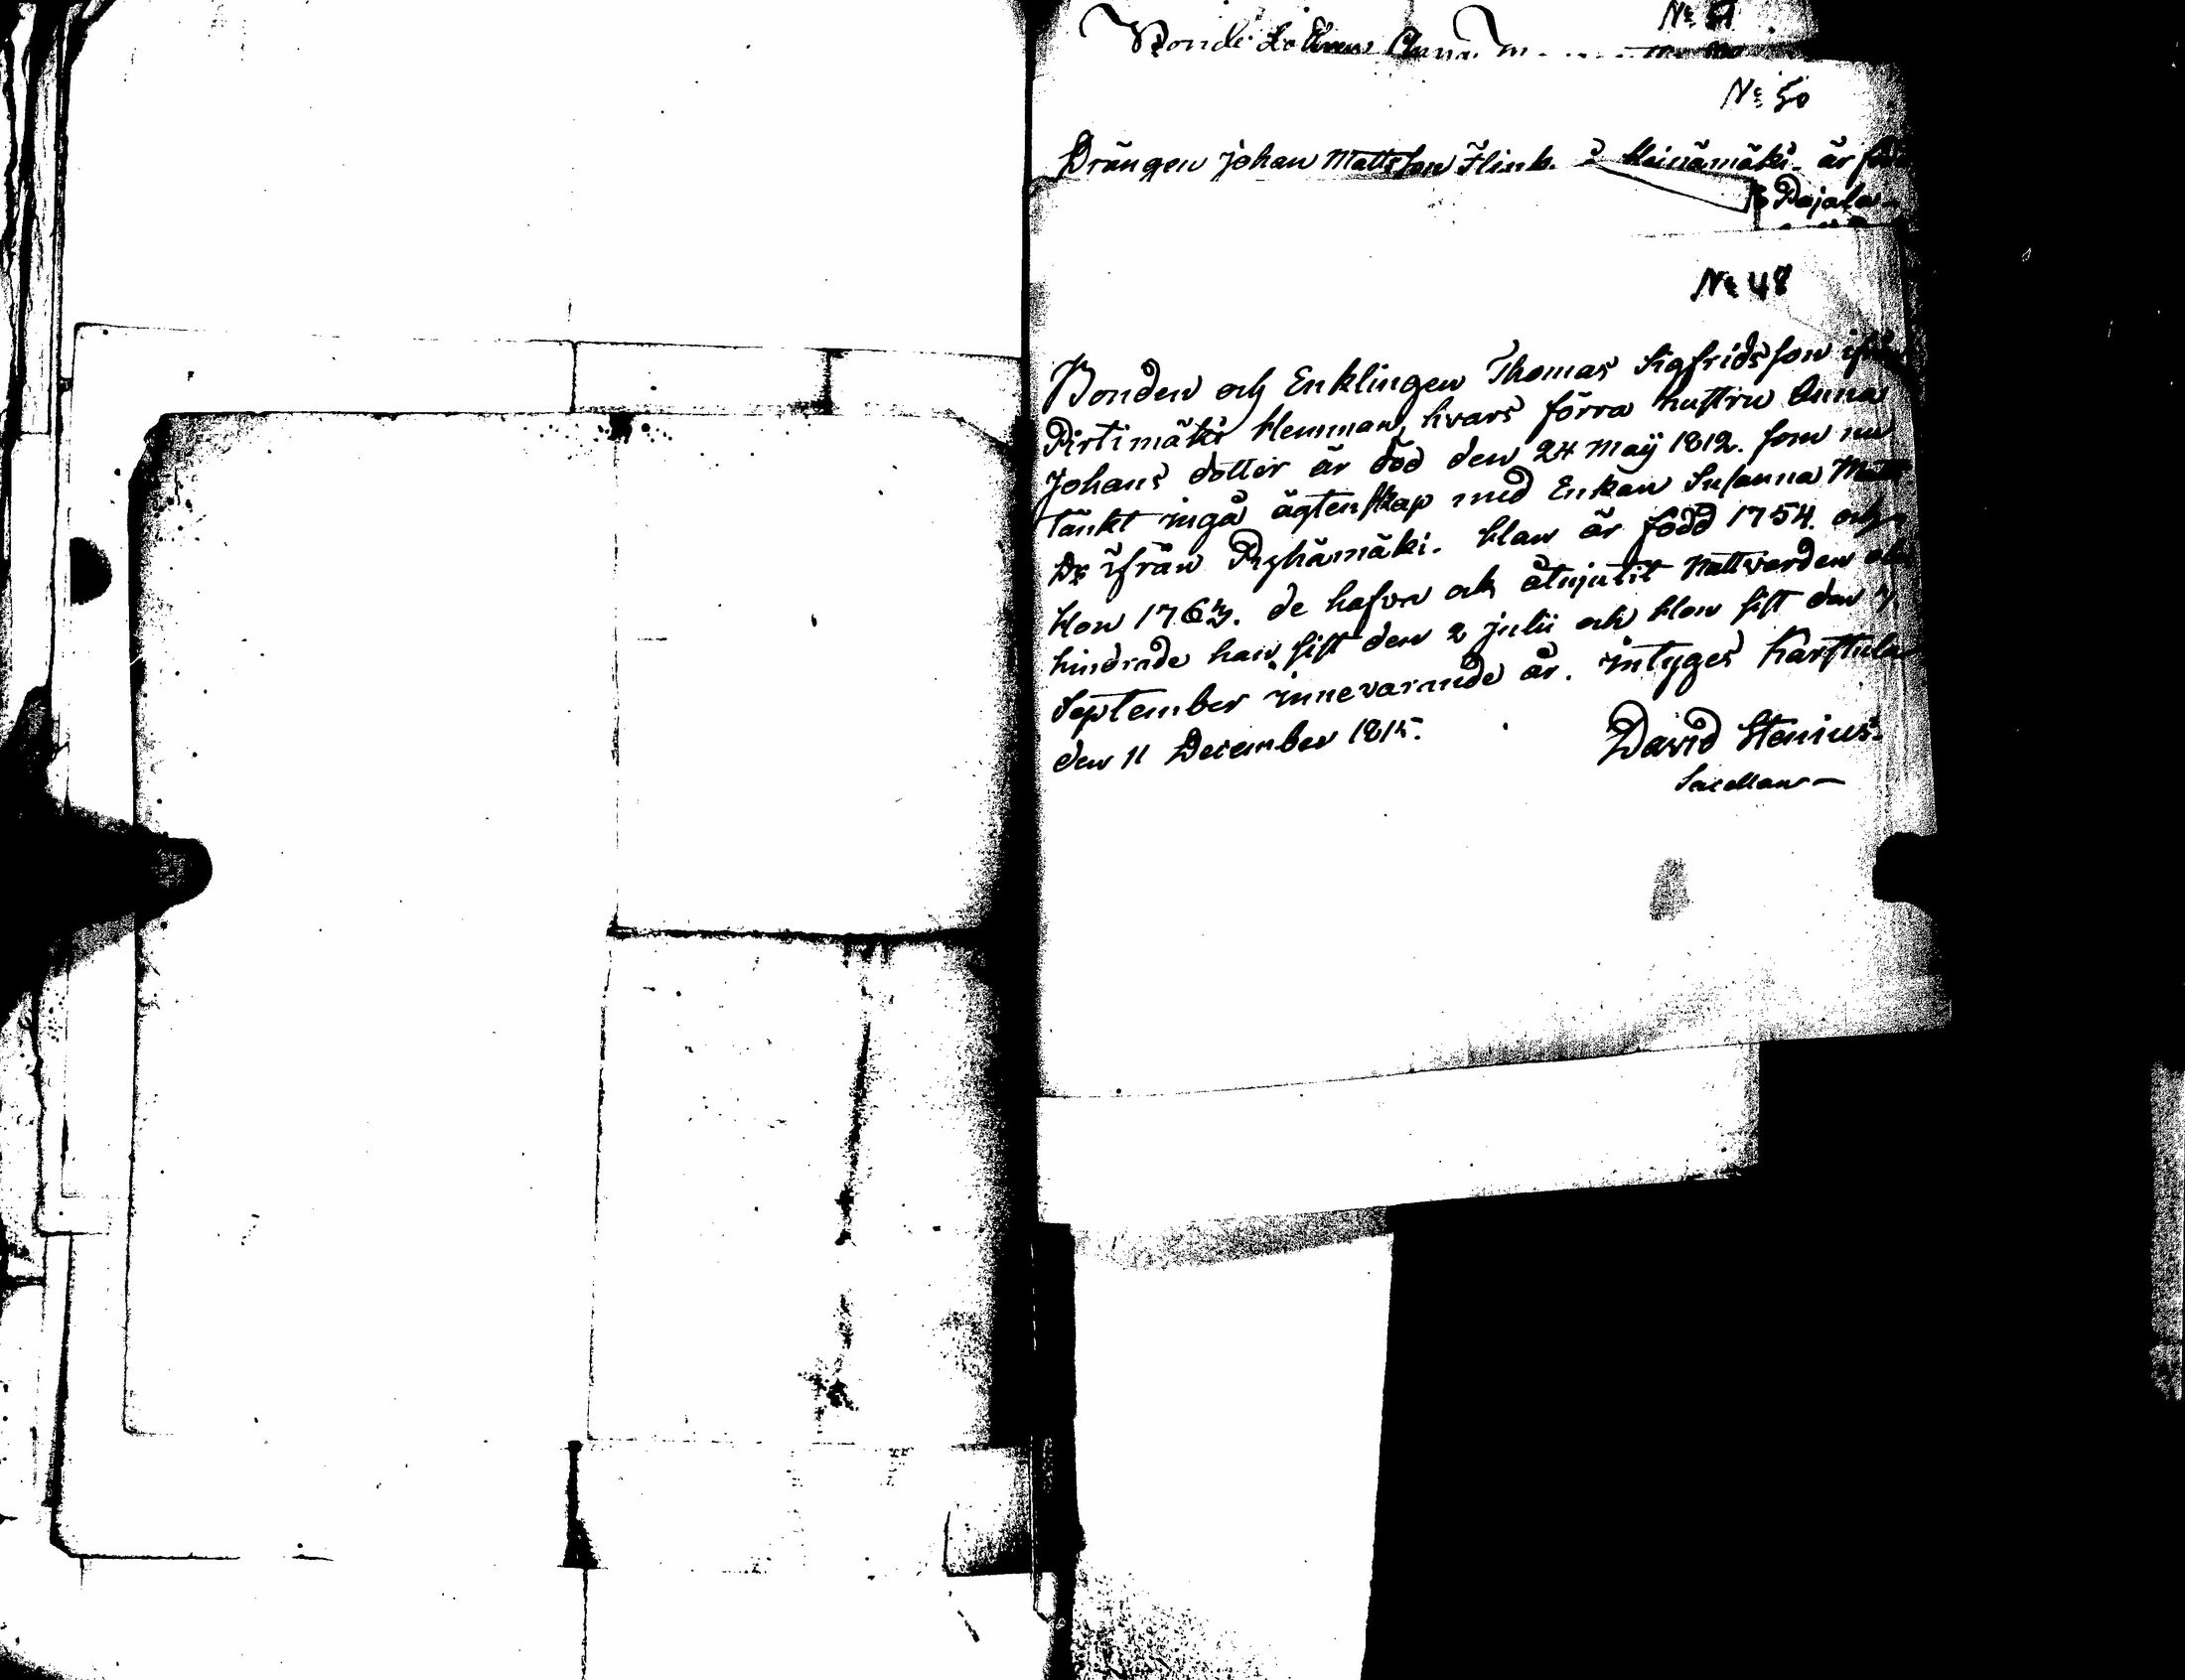 № 51
Bonde
№ 50
Drängen Johan Mattsson Flink. i Heinämäki. är
Pajala
№ 48
Bonden och Enklingen Thomas Sigfridsson ifrån
Pirtimäki Hemman, hvars förra hustru Anna
Johans dotter är död den 24 Maÿ 1812. som nu
tänkt ingå ägtenskap med Enkan Susanna
Dr ifrån Pyhämäki. Han är född 1754. och
Hon 1763. de hafva ock åtnjutit Nattvarden
hindrade han sist den 2 julii och Hon sist den 7.
September innevarande år. intyges Karstula
den 11 December 1815.
David Stenius.
Sacellan